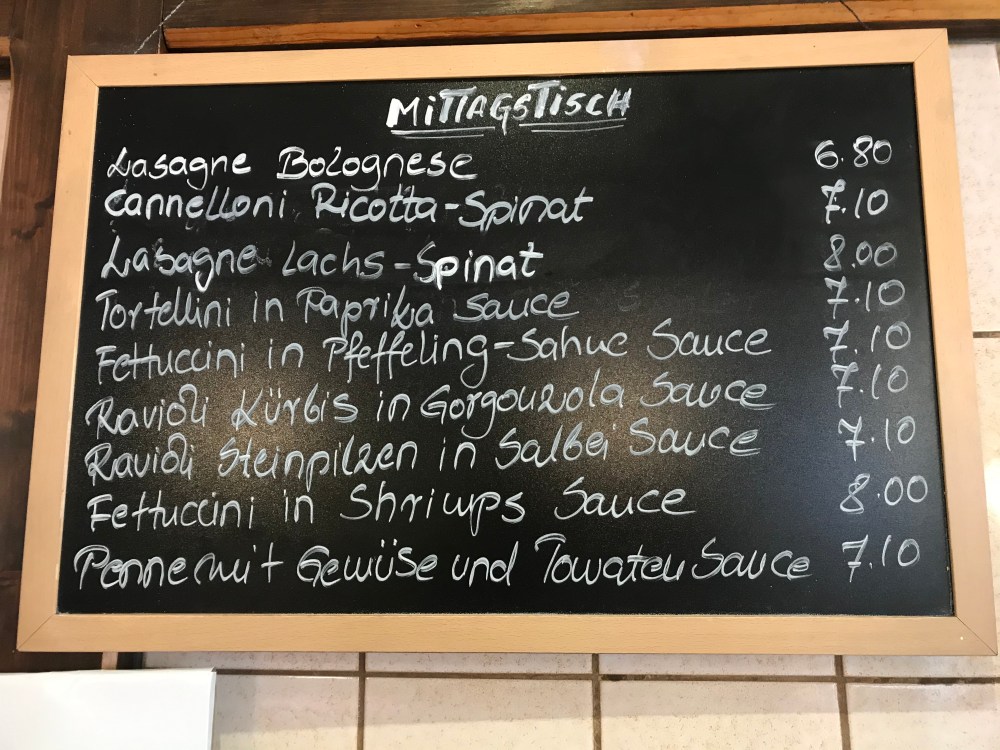 MITTAGSTISCH
Lasagne Bolognese 6.80
Cannelloni Ricotta-Spinat 7.10
Lasagne Lachs-Spinat 8.00
Tortellini in Paprika Sauce 7.10
Fettuccini in Pfeffeling-Sahne Sauce 7.10
Ravioli Kürbis in Gorgonzola Sauce 7.10
Ravioli Steinpilzen in Salbei Sauce 7.10
Fettuccini in Shrimps Sauce 8.00
Penne mit Gemüse und Tomaten Sauce 7.10